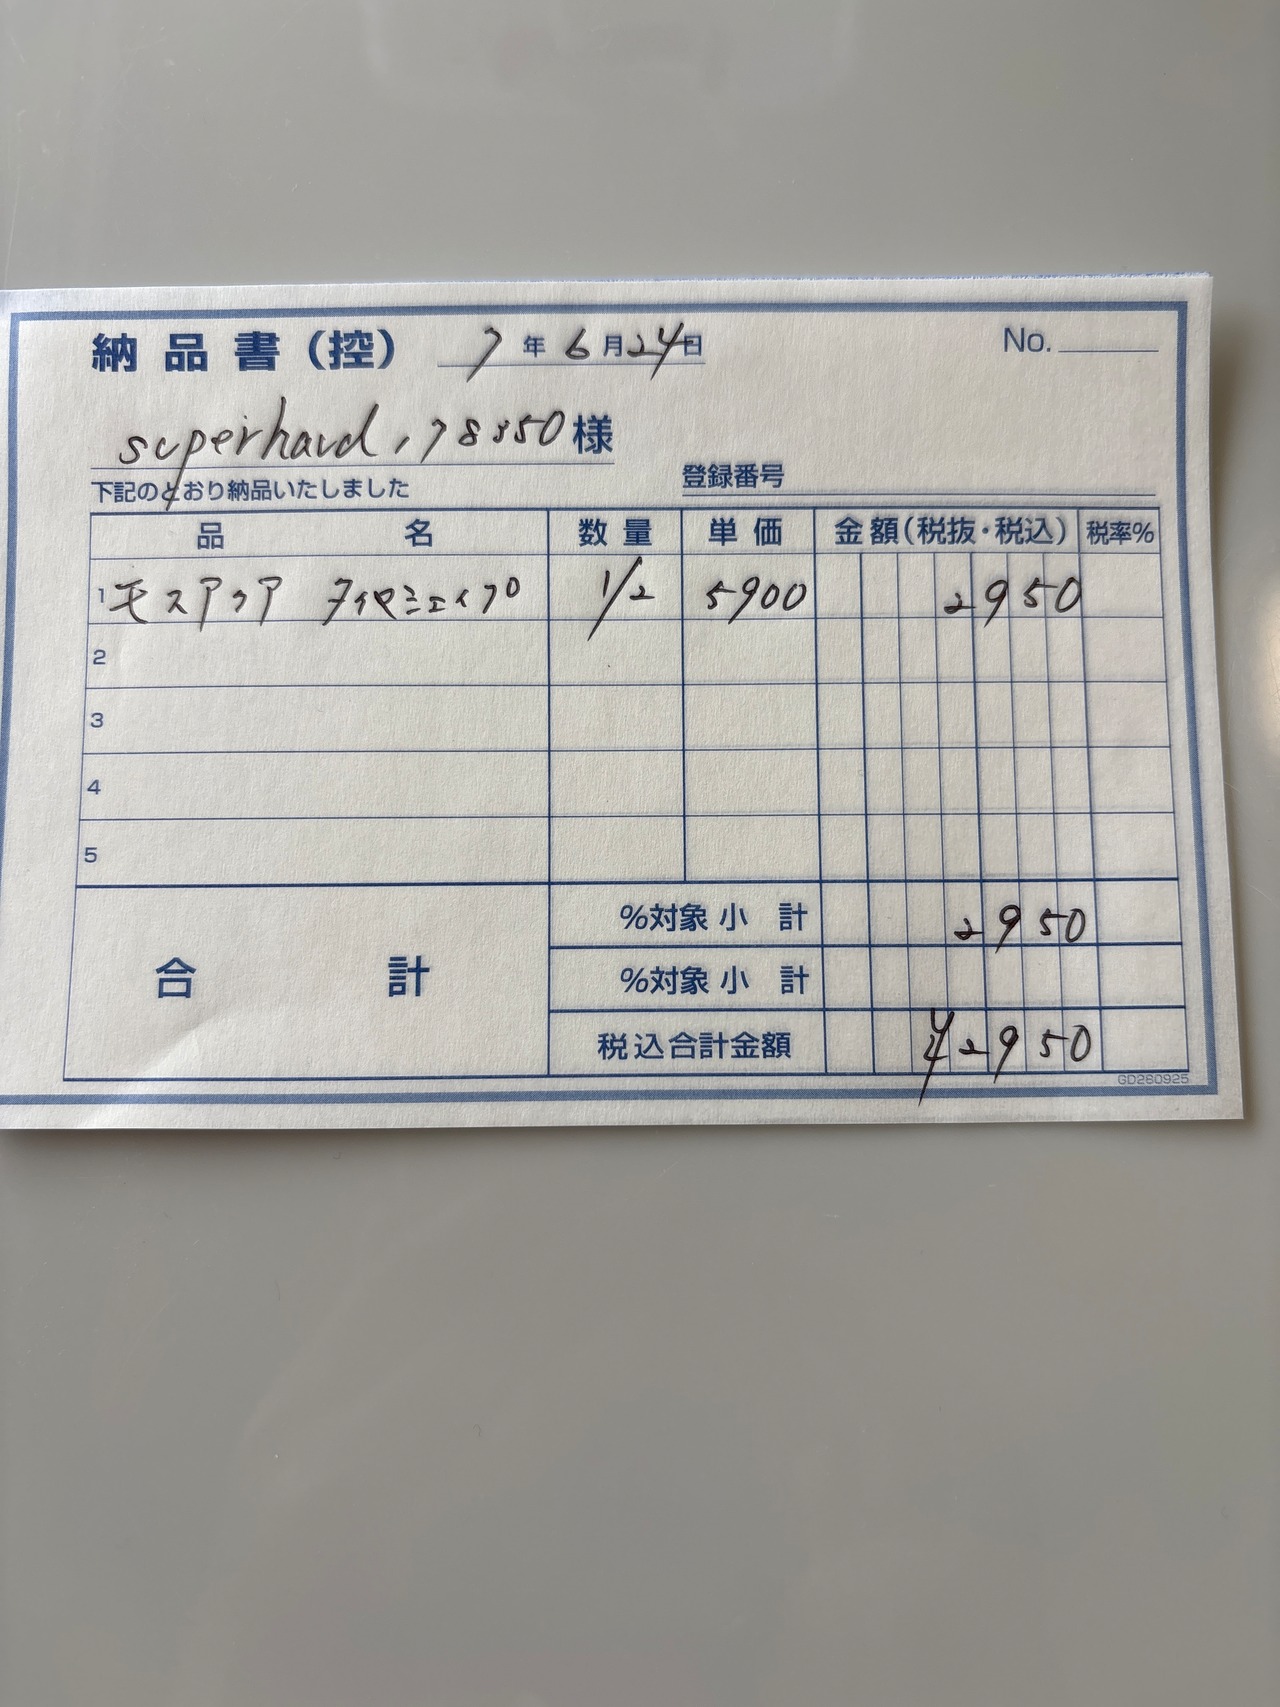 納品書(控) 7年6月24日 No.
superhard,78350様
下記のとおり納品いたしました 登録番号
品名 数量 単価 金額(税抜・税込) 税率%
1 モスアクア タイヤシェイプ 1/2 5900 2950
2
3
4
5
合計
%対象小計 2950
%対象小計
税込合計金額 ¥2950
GD260925